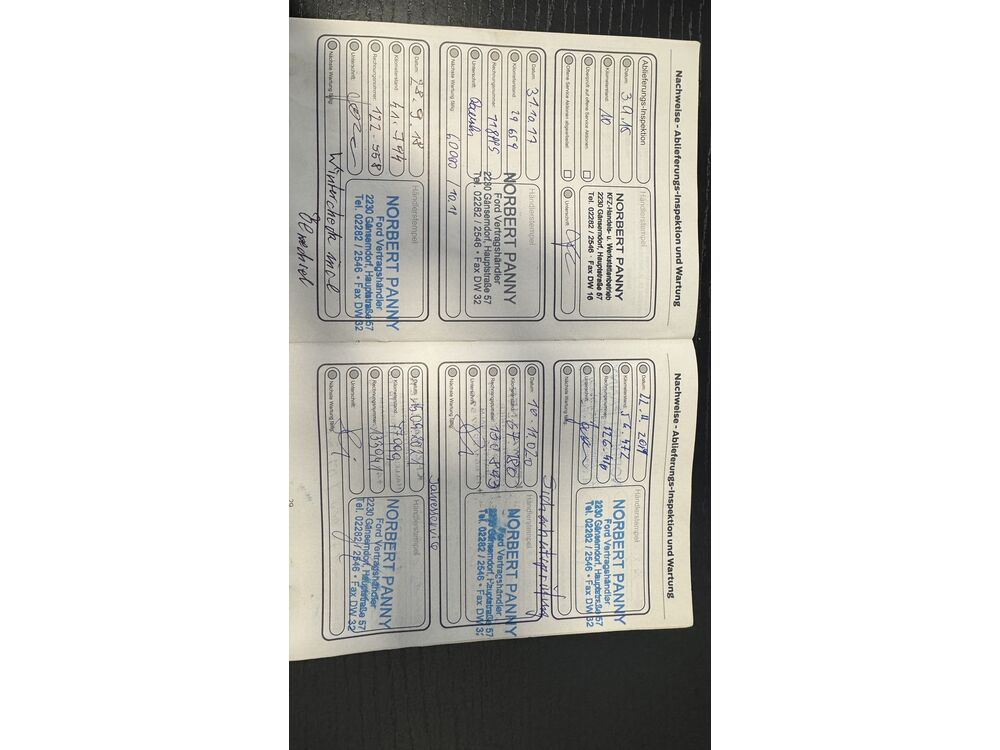 Nachweise - Ablieferungs-Inspektion und Wartung
Ablieferungs-Inspektion
Händlerstempel
Datum:
Kilometerstand: 10
Überprüft auf offene Service Aktionen.
Offene Service Aktionen abgearbeitet
Unterschrift:
NORBERT PANNY
KFZ-Handels- u. Werkstättenbetrieb
2230 Gänserndorf, Hauptstraße 57
Tel. 02282 / 2546 · Fax DW 16
Datum: 31.10.17
Kilometerstand: 29 659
Rechnungsnummer:
Unterschrift:
Nächste Wartung fällig:
Händlerstempel
NORBERT PANNY
Ford Vertragshändler
2230 Gänserndorf, Hauptstraße 57
Tel. 02282 / 2546 · Fax DW 32
Datum: 28.9.18
Kilometerstand: 41.794
Rechnungsnummer: 122.558
Unterschrift:
Nächste Wartung fällig:
Wintercheck
Händlerstempel
NORBERT PANNY
Ford Vertragshändler
2230 Gänserndorf, Hauptstraße 57
Tel. 02282 / 2546 · Fax DW 32
Nachweise - Ablieferungs-Inspektion und Wartung
Datum: 22.11.2019
Kilometerstand: 54.472
Rechnungsnummer: 126.416
Unterschrift:
Nächste Wartung fällig:
Händlerstempel
NORBERT PANNY
Ford Vertragshändler
2230 Gänserndorf, Hauptstraße 57
Tel. 02282 / 2546 · Fax DW 32
Datum: 10.11.020
Kilometerstand: 67 180
Rechnungsnummer: 130 893
Unterschrift:
Nächste Wartung fällig:
Händlerstempel
NORBERT PANNY
Ford Vertragshändler
2230 Gänserndorf, Hauptstraße 57
Tel. 02282 / 2546 · Fax DW 32
Datum:
Kilometerstand: 77999
Rechnungsnummer:
Unterschrift:
Nächste Wartung fällig:
Jahresservice
Händlerstempel
NORBERT PANNY
Ford Vertragshändler
2230 Gänserndorf, Hauptstraße 57
Tel. 02282 / 2546 · Fax DW 32
29